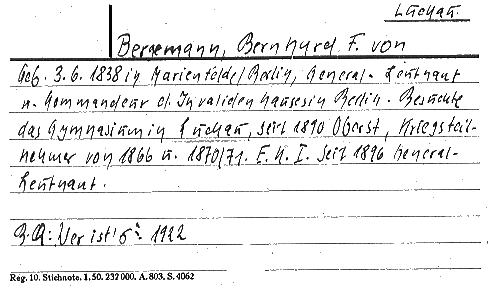 Luckau.
Bergemann, Bernhard F. von
Geb. 3.6.1838 in Marienfelde/Berlin, General-Leutnant
u. Kommandeur d. Invalidenhauses in Berlin. Besuchte
das Gymnasium in Luckau, seit 1890 Oberst, Kriegsteil-
nehmer von 1866 u. 1870/71. E.K.I. Seit 1896 General-
Leutnant.
Wer ist's 1922
Reg. 10. Stichnote. 1, 50. 232 000. A. 803. S. 4062